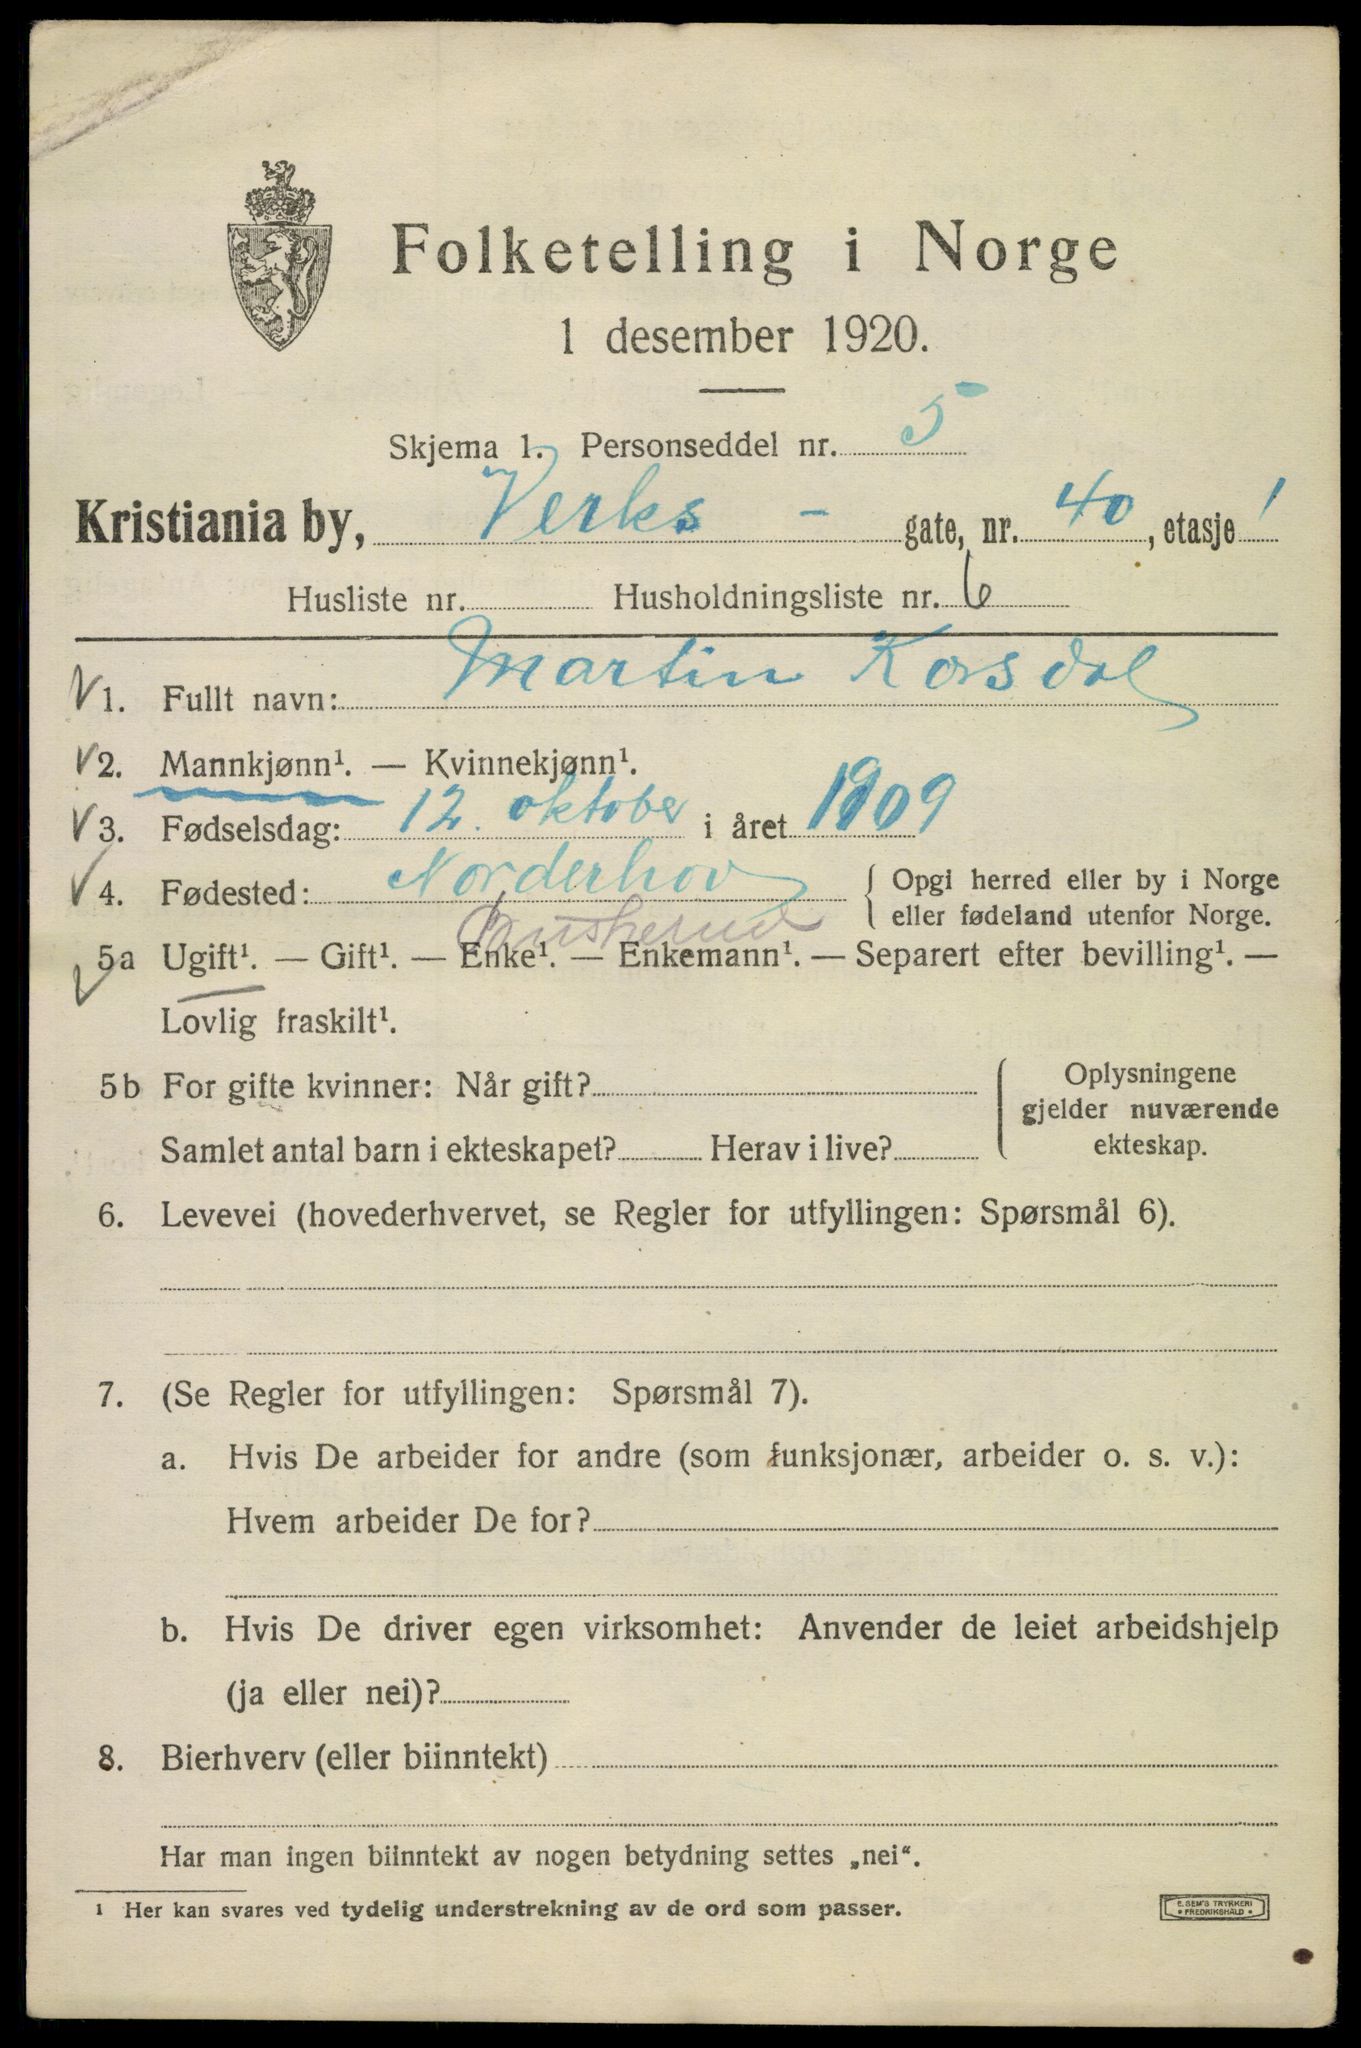 Folketelling i Norge
1 desember 1920.
Skjema 1. Personseddel nr. 5
Kristiania by, Verks - gate, nr. 40, etasje 1
Husliste nr. Husholdningsliste nr. 6
1. Fullt navn: Martin Korsdal
2. Mannkjønn¹. — Kvinnekjønn¹.
3. Fødselsdag: 12. oktober i året 1909
4. Fødested: Norderhov { Opgi herred eller by i Norge
eller fødeland utenfor Norge.
Buskerud
5a Ugift¹. — Gift¹. — Enke¹. — Enkemann¹. — Separert efter bevilling¹. —
Lovlig fraskilt¹.
5b For gifte kvinner: Når gift? { Oplysningene
gjelder nuværende
Samlet antal barn i ekteskapet? Herav i live? ekteskap.
6. Levevei (hovederhvervet, se Regler for utfyllingen: Spørsmål 6).
7. (Se Regler for utfyllingen: Spørsmål 7).
a. Hvis De arbeider for andre (som funksjonær, arbeider o. s. v.):
Hvem arbeider De for?
b. Hvis De driver egen virksomhet: Anvender de leiet arbeidshjelp
(ja eller nei)?
8. Bierhverv (eller biinntekt)
Har man ingen biinntekt av nogen betydning settes „nei“.
¹ Her kan svares ved tydelig understrekning av de ord som passer.
E. SEM'S TRYKKERI
• FREDRIKSHALD •